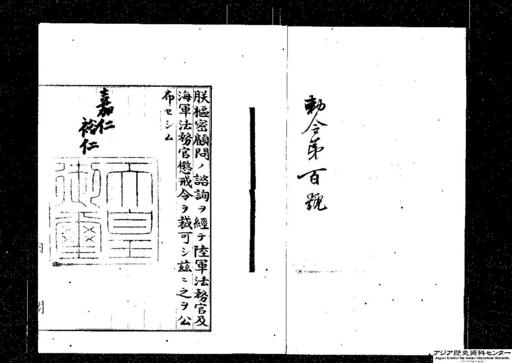 勅令第百號
朕樞密顧問ノ諮詢ヲ經テ陸軍法務官及
海軍法務官懲戒令ヲ裁可シ茲ニ之ヲ公
布セシム
嘉仁
裕仁
天皇
御璽
アジア歴史資料センター
Japan Center for Asian Historical Records